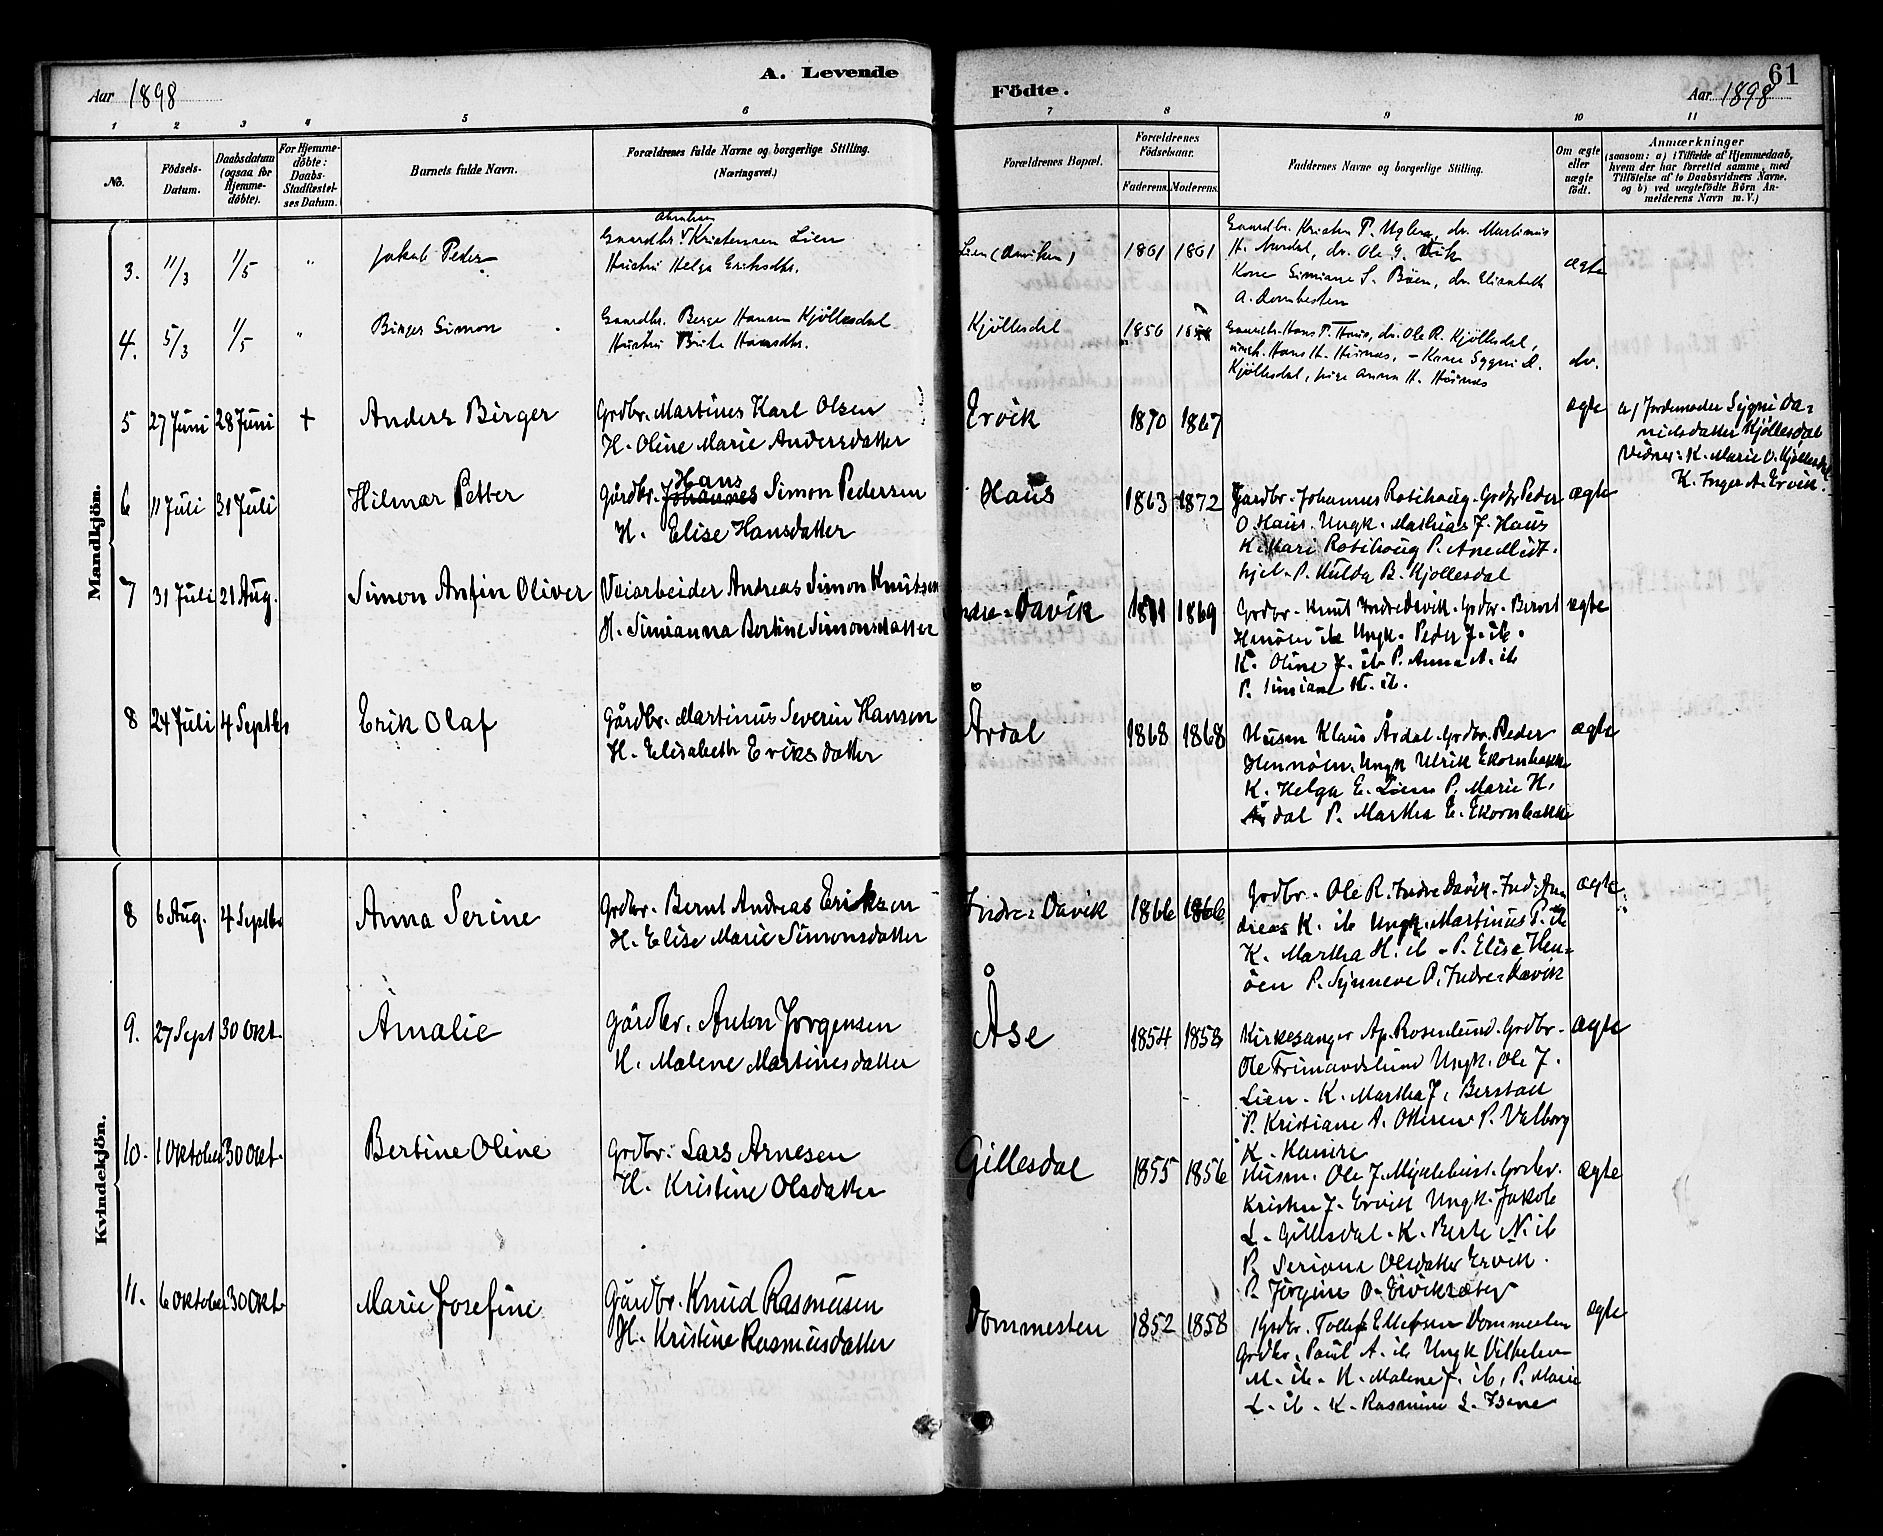 A. Levende
Födte.
61
Aar 1898
Aar 1898
1 2 3 4 5 6 7 8 9 10 11
No.
Födsels-
Datum.
Daabsdatum
(ogsaa for
Hjemme-
döbte).
For Hjemme-
döbte:
Daabs-
Stadfæstel-
ses Datum.
Barnets fulde Navn.
Forældrenes fulde Navne og borgerlige Stilling.
(Næringsvei.)
Forældrenes Bopæl.
Forældrenes
Födselsaar.
Faderens.
Moderens.
Faddernes Navne og borgerlige Stilling.
Om ægte
eller
uægte
födt.
Anmærkninger
(saasom: a) i Tilfælde af Hjemmedaab,
hvem der har forrettet samme, med
Tilföielse af to Daabsvidners Navne,
og b) ved uægtefödte Börn An-
melderens Navn m. V.)
Mandkjön.
3. 11/3 1/5 "
Jakob Peder
Abraham
Gaardbr. Kristensen Lien
Hustru Helga Eriksdtr.
Lien (Daviken) 1861 1861
Gaardbr. Kristen P. Uglen, do. Martinus
H. Aardal, do. Ole G. Vik
Kone Simiane S. Böen, do. Elisabeth
A. Dombesten
ægte
4. 5/3 1/5 "
Birger Simon
Gaardbr. Berge Hansen Kjöllesdal
Hustru Brite Hansdtr.
Kjöllesdal 1856
Gaardbr. Hans P. Haus, do. Ole R. Kjöllesdal,
ungk. Hans H. Hüsnæs, – Kone Sygni D.
Kjöllesdal, pige Anna H. Hüsnæs
do.
5 27 Juni 28 Juni +
Anders Birger
Grdbr. Martines Karl Olsen
H. Oline Marie Andersdatter
Ervik 1870 1867
ægte
a) Jordemoder Sygni Da=
nielsdatter Kjöllesdal
Vidner: K. Marie O. Kjöllesdal
K. Inger A. Ervik.
6 11 Juli 31 Juli
Hilmar Petter
Hans
Gårdbr. Johannes Simon Pedersen
H. Elise Hansdatter
Haus 1863 1872
Gardbr. Johannes Rosihoug. Grdbr Peder
O. Haus. Ungk. Mathias J. Haus
K. Mari Rosihoug P. Ane Midt-
hjel. P. Hulda B. Kjollesdal
ægte
7 31 Juli 21 Aug.
Simon Anfin Oliver
Veiarbeider Andreas Simon Knutsen
H. Simianna Bertine Simonsdatter
Indre=Davik 1871 1869
Grdbr. Knut Indre Davik. Grdbr. Bernt
Hennöen ib Ungk. Peder J. ib.
K. Oline J. ib P. Anna A. ib
P. Simiane K. ib.
ægte
8 24 Juli 4 Septbr
Erik Olaf
Gårdbr. Martinus Severin Hansen
H. Elisabeth Eriksdatter
Årdal 1868 1868
Husm Klaus Årdal. Grdbr. Peder
Hennöen. Ungk Ulrik Ekornbakke
K. Helga E. Lien P. Marie H.
Årdal P. Martha E. Ekornbakke
ægte
Kvindekjön.
8 6 Aug. 4 Septbr
Anna Serine
Grdbr. Bernt Andreas Eriksen
H. Elise Marie Simonsdatter
Indre=Davik 1866 1866
Grdbr. Ole R. Indre Davik. Ind. An
dreas K. ib Ungk. Martinus P. ib
K. Martha H. ib. P. Elise Hen=
öen P. Synneve P. Indre=Davik
ægte
9. 27 Sept 30 Okt.
Amalie
Gårdbr. Anton Jorgensen
H. Malene Martinesdatter
Åse 1854 1858
Kirkesanger Ap. Rosenlund. Grdbr.
Ole Frimandslund Ungk. Ole J.
Lien. K. Martha J. Berstad
P. Kristiane A. Otteren P. Valborg
K. Hamre
ægte
10. 1 Oktober 30 Okt.
Bertine Oline
Grdbr. Lars Arnesen
H. Kristine Olsdatter
Gillesdal 1855 1856
Husm. Ole J. Myklebust. Grdbr.
Kristen J. Ervik Ungk. Jakob
L. Gillesdal. K. Berte N. ib
P. Seriane Olsdatter Ervik.
P. Jörgine O. Erviksæter
ægte
11. 6 Oktober 30 Okt.
Marie Josefine
Gårdbr. Knud Rasmusen
H. Kristine Rasmusdatter
Dommesten 1852 1858
Grdbr. Tollef Ellefsen Dommesten
Grdbr. Paul A. ib Ungk Vilhelm
M. ib. K. Malene J. ib, P. Marie
L. ib. K. Rasmine L. Isene
ægte